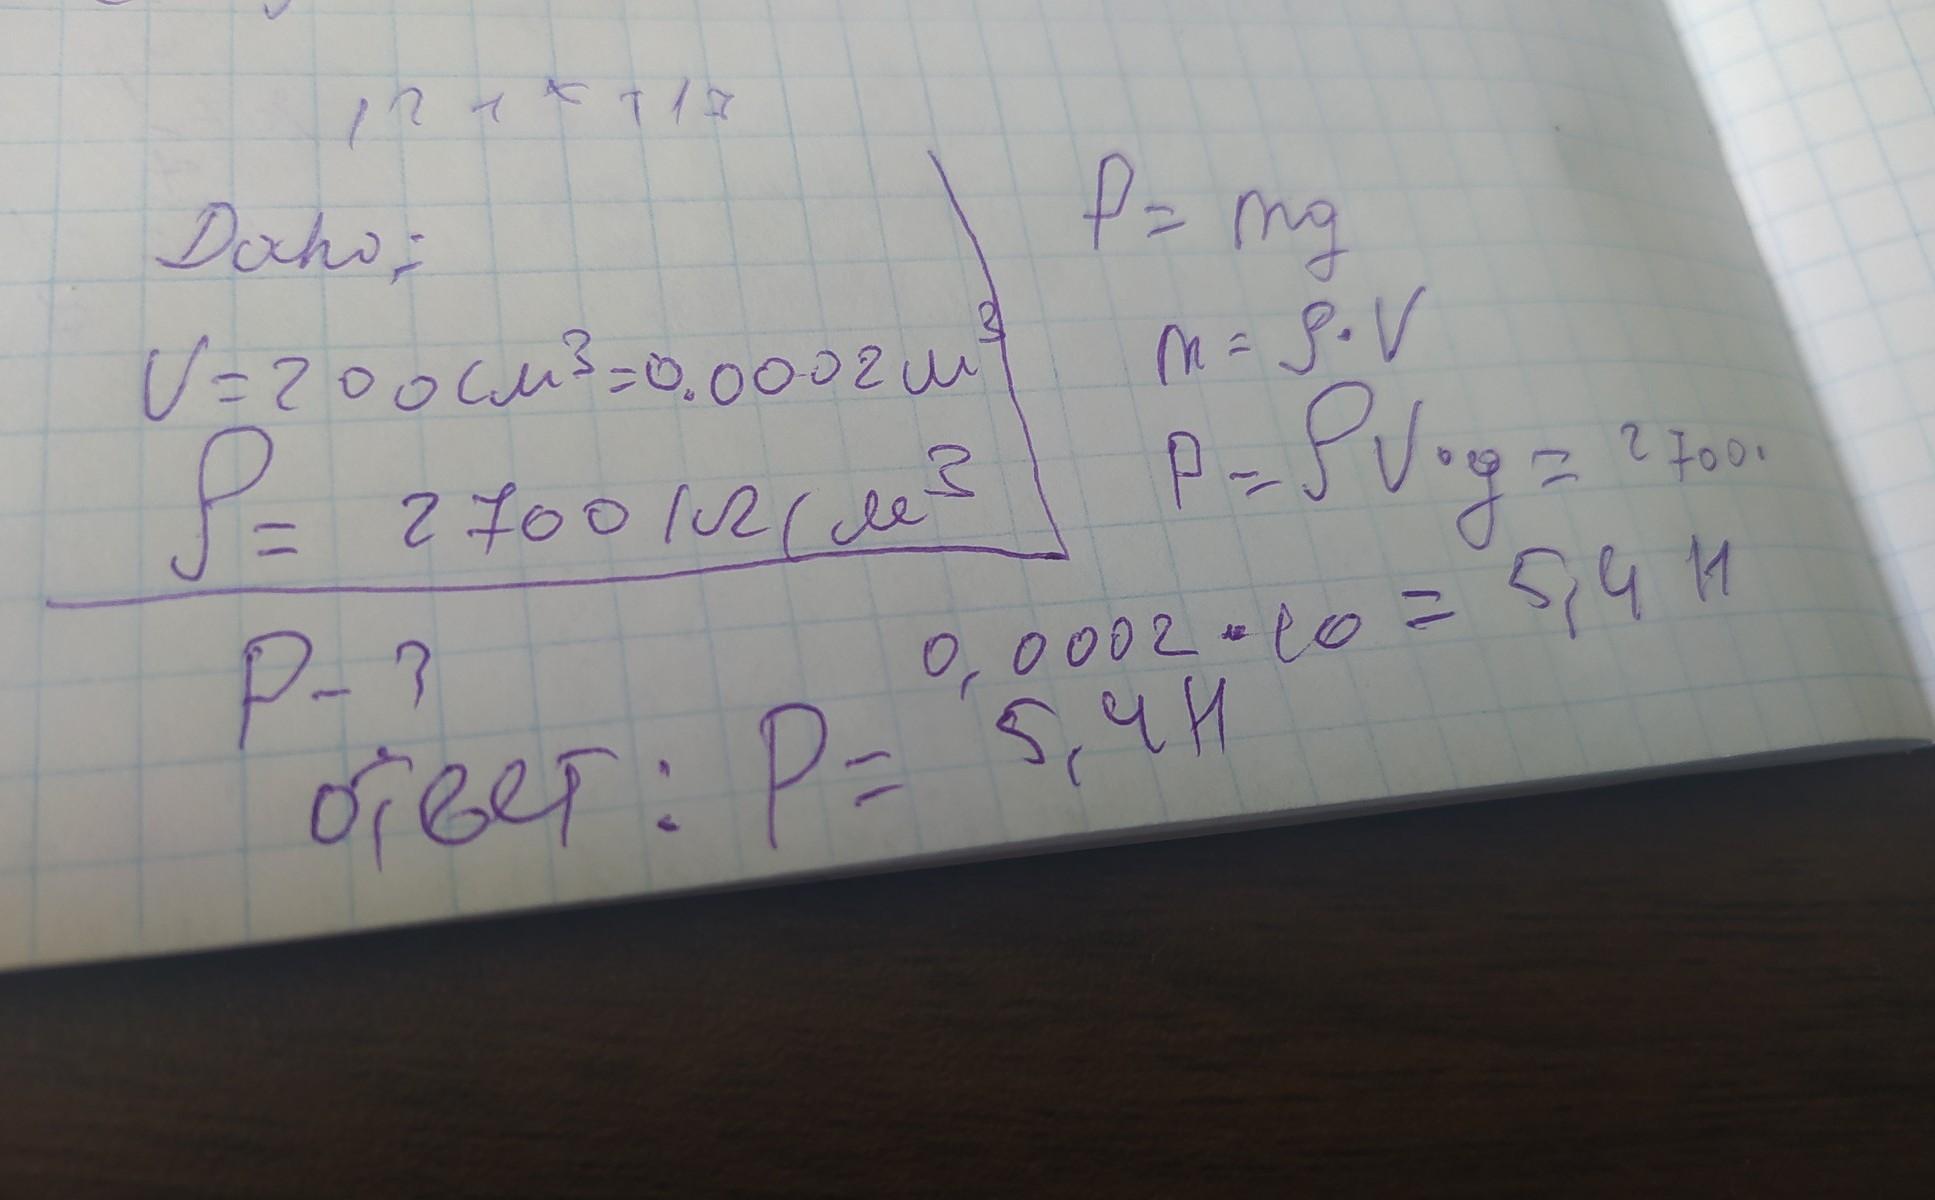 12 + x + 17
Дано:
V = 200 см³ = 0.0002 м³
ρ = 2700 кг/м³
P - ?
P = mg
m = ρ · V
P = ρV · g = 2700 ·
0,0002 · 10 = 5,4 Н
ответ: P = 5,4 Н